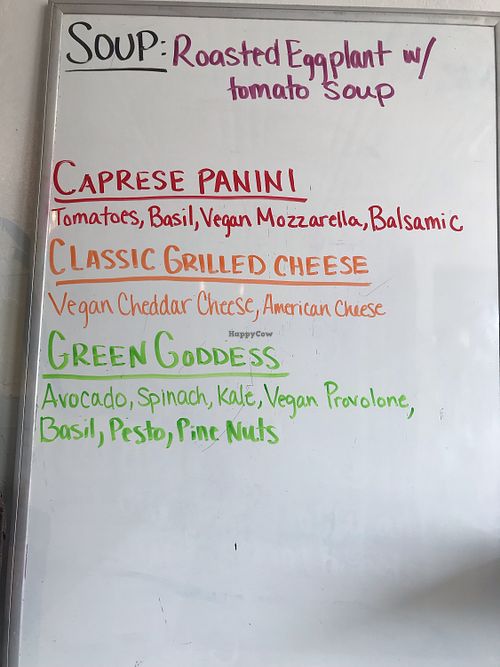 SOUP: Roasted Eggplant w/
tomato soup
CAPRESE PANINI
Tomatoes, Basil, Vegan Mozzarella, Balsamic
CLASSIC GRILLED CHEESE
Vegan Cheddar Cheese, American Cheese
HappyCow
GREEN GODDESS
Avocado, Spinach, Kale, Vegan Provolone,
Basil, Pesto, Pine Nuts